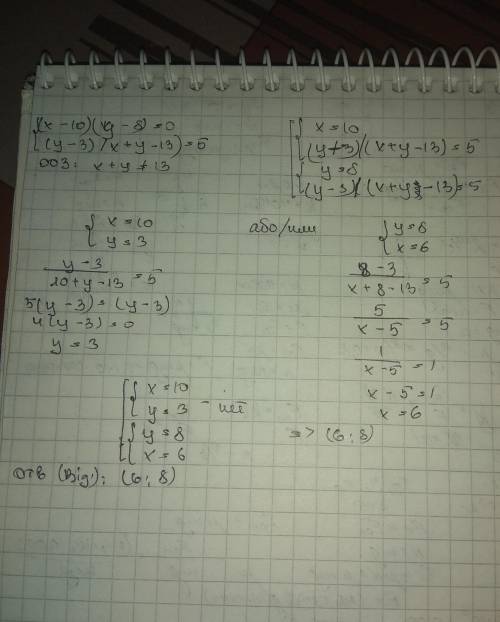 {(x-10)(y-8)=0
(y-3)/x+y-13)=5
ОДЗ: x+y≠13
[{x=10
(y-3)/(x+y-13)=5
{y=8
(y-3)/(x+y-13)=5
{x=10
y=3
y-3/10+y-13=5
5(y-3)=(y-3)
4(y-3)=0
y=3
або/или
{y=8
x=6
8-3/x+8-13=5
5/x-5=5
1/x-5=1
x-5=1
x=6
=> (6;8)
[{x=10
y=3 - нет
{y=8
x=6
отв (Від): (6;8)